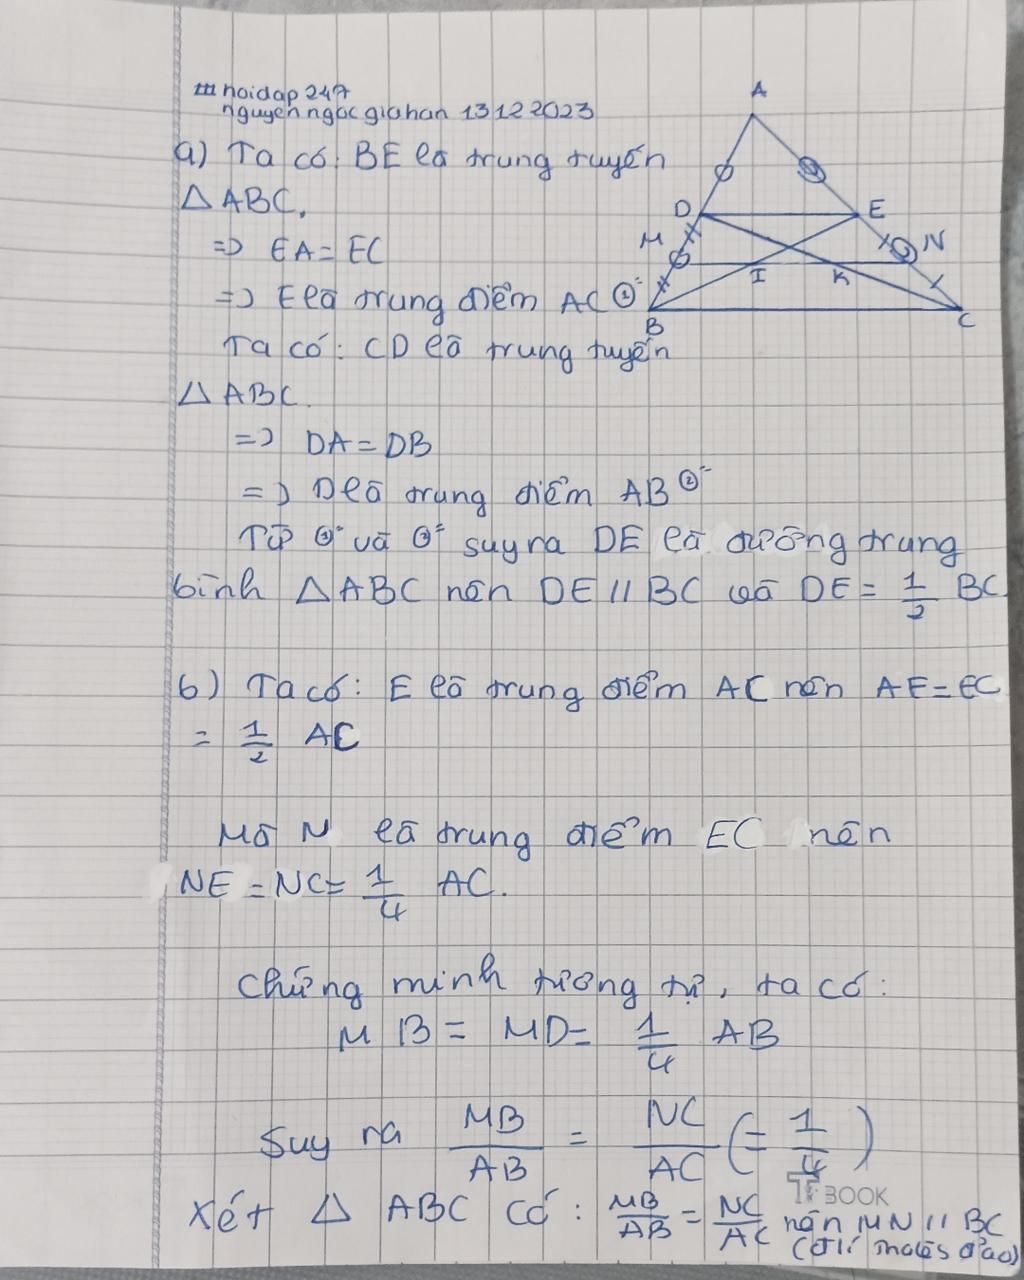 hoidap247
nguyenngocgiahan 13122023
a) Ta có: BE là trung tuyến
△ ABC.
=> EA = EC
=> E là trung điểm AC ①
Ta có: CD là trung tuyến
△ ABC.
=> DA = DB
=> D là trung điểm AB ②
Từ ① và ② suy ra DE là đường trung
bình △ ABC nên DE // BC và DE = 1/2 BC
b) Ta có: E là trung điểm AC nên AE = EC
= 1/2 AC
Mà N là trung điểm EC nên
NE = NC = 1/4 AC.
Chứng minh tương tự, ta có:
MB = MD = 1/4 AB
Suy ra MB/AB = NC/AC (= 1/4)
Xét △ ABC có: MB/AB = NC/AC nên MN // BC
(đ/lí Thalès đảo)
A
D
E
M
N
I
K
B
C
BOOK